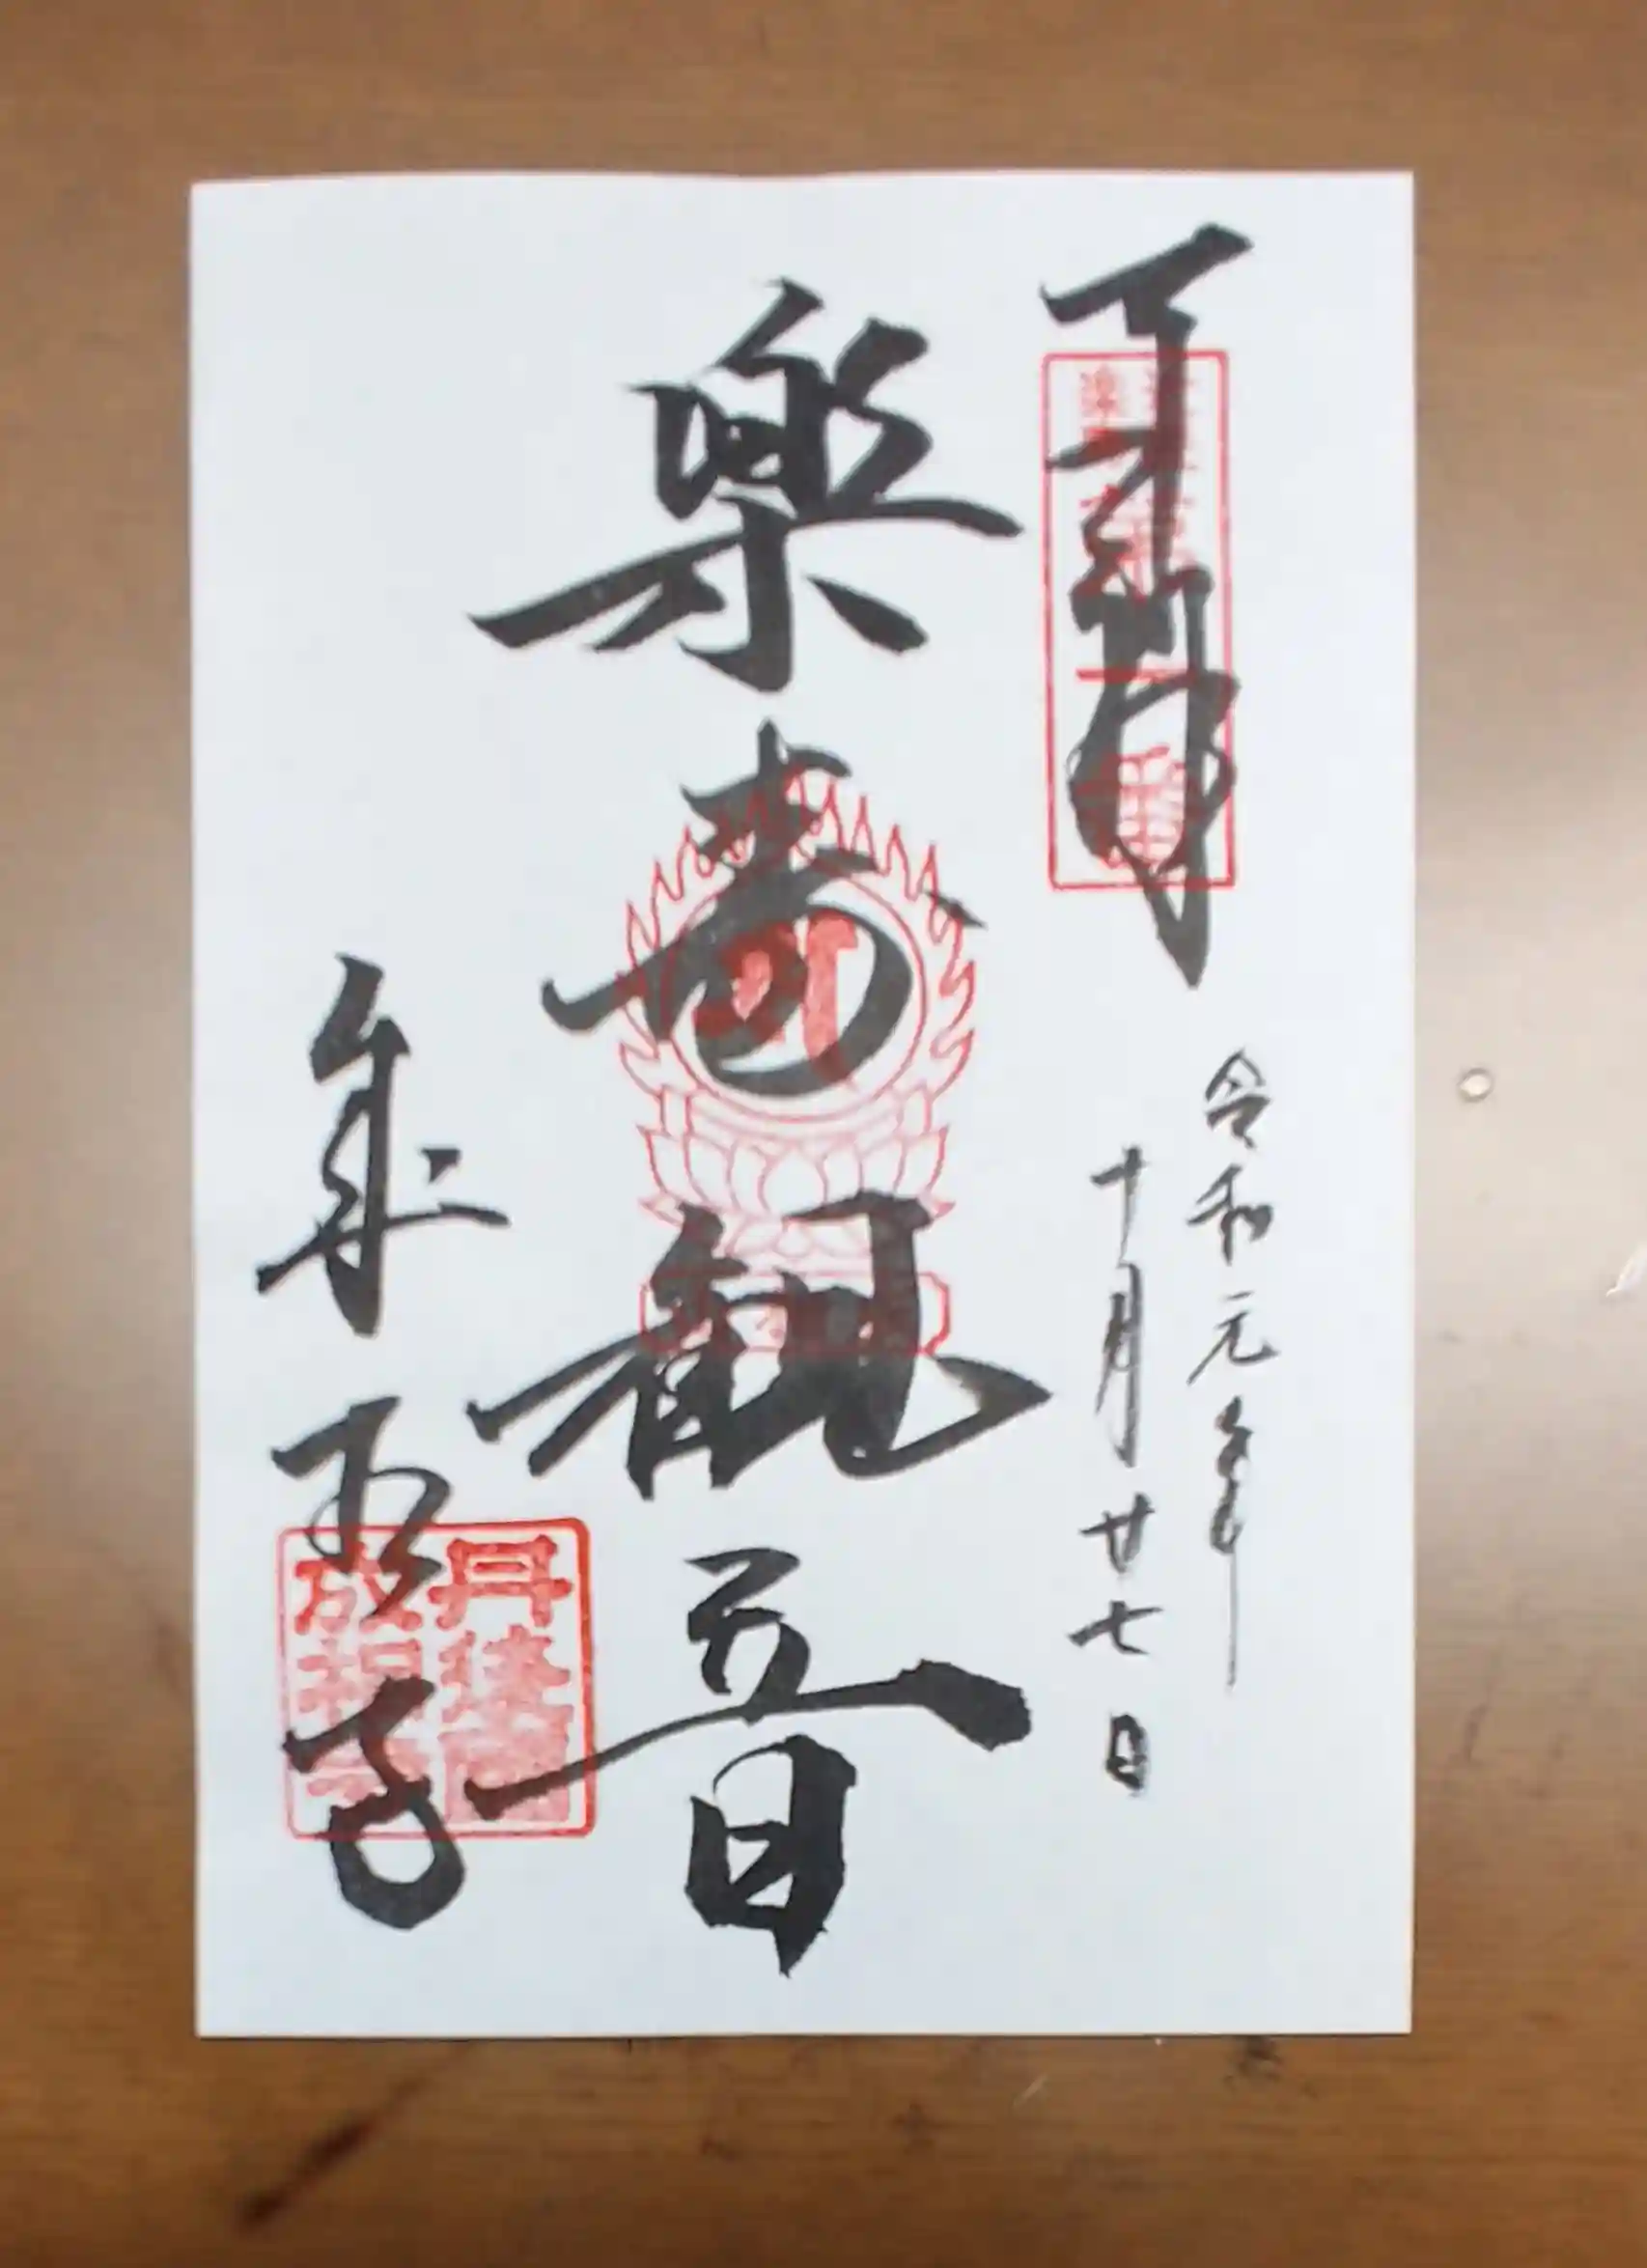 令和元年
十月廿七日
楽寿観音
成相寺
丹後國
成相寺